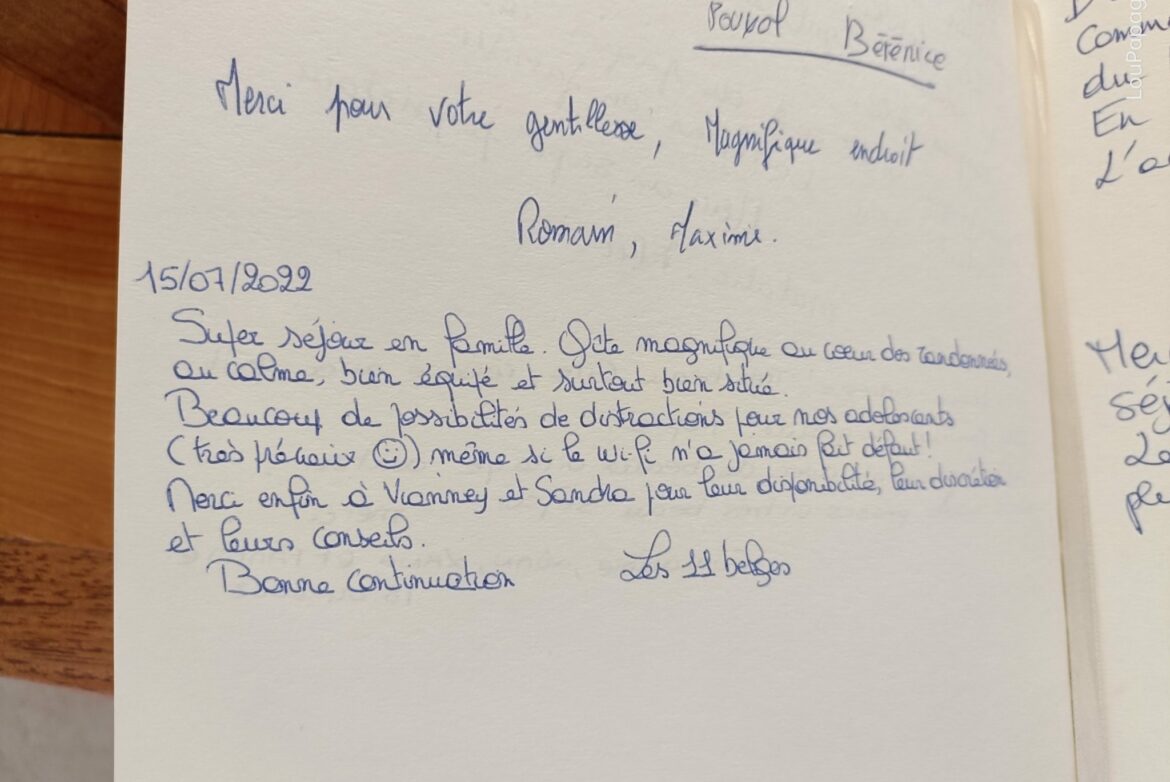 Pouxol Bérénice
Merci pour votre gentillesse, Magnifique endroit
Romain, Maxime.
15/07/2022
Super séjour en famille. Gîte magnifique au coeur des randonnées,
au calme, bien équipé et surtout bien situé.
Beaucoup de possibilités de distractions pour nos adolescents
(très précieux ☺) même si le wifi n'a jamais fait défaut!
Merci enfin à Vianney et Sandra pour leur disponibilité, leur discrétion
et leurs conseils.
Bonne continuation Les 11 belges
Comm
du
En
L'a
Mer
séj
ple
LouPapag